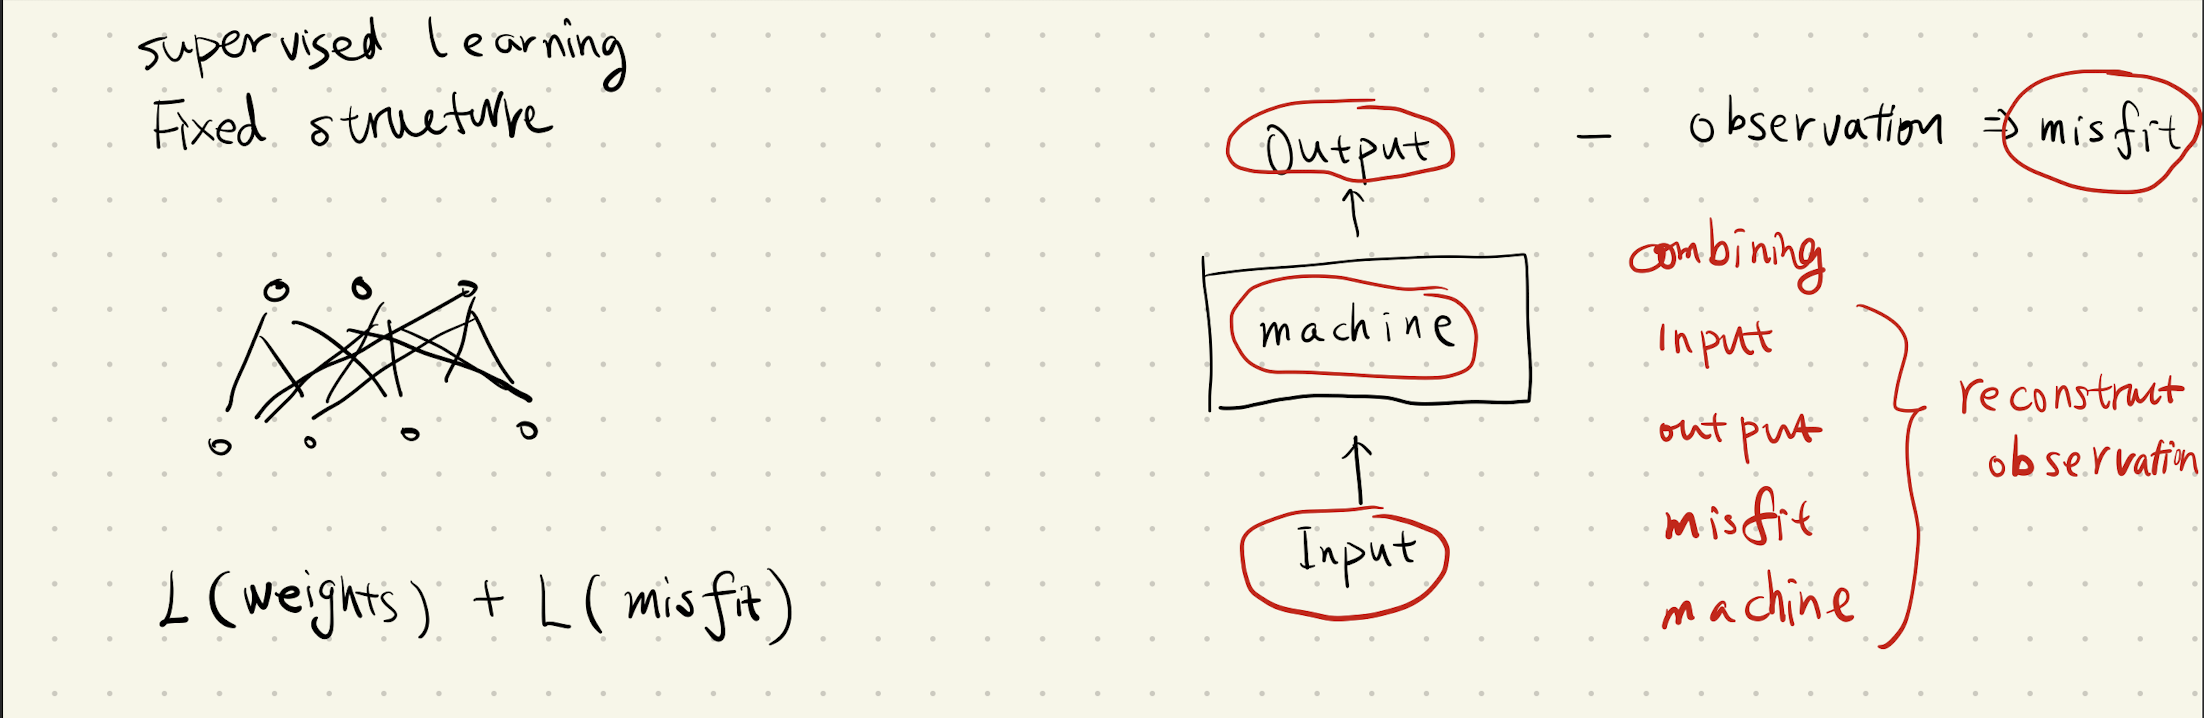 supervised learning
Fixed structure
L(weights) + L(misfit)
Output — observation ⇒ misfit
machine
Input
combining
Input
output
misfit
machine
reconstruct
observation